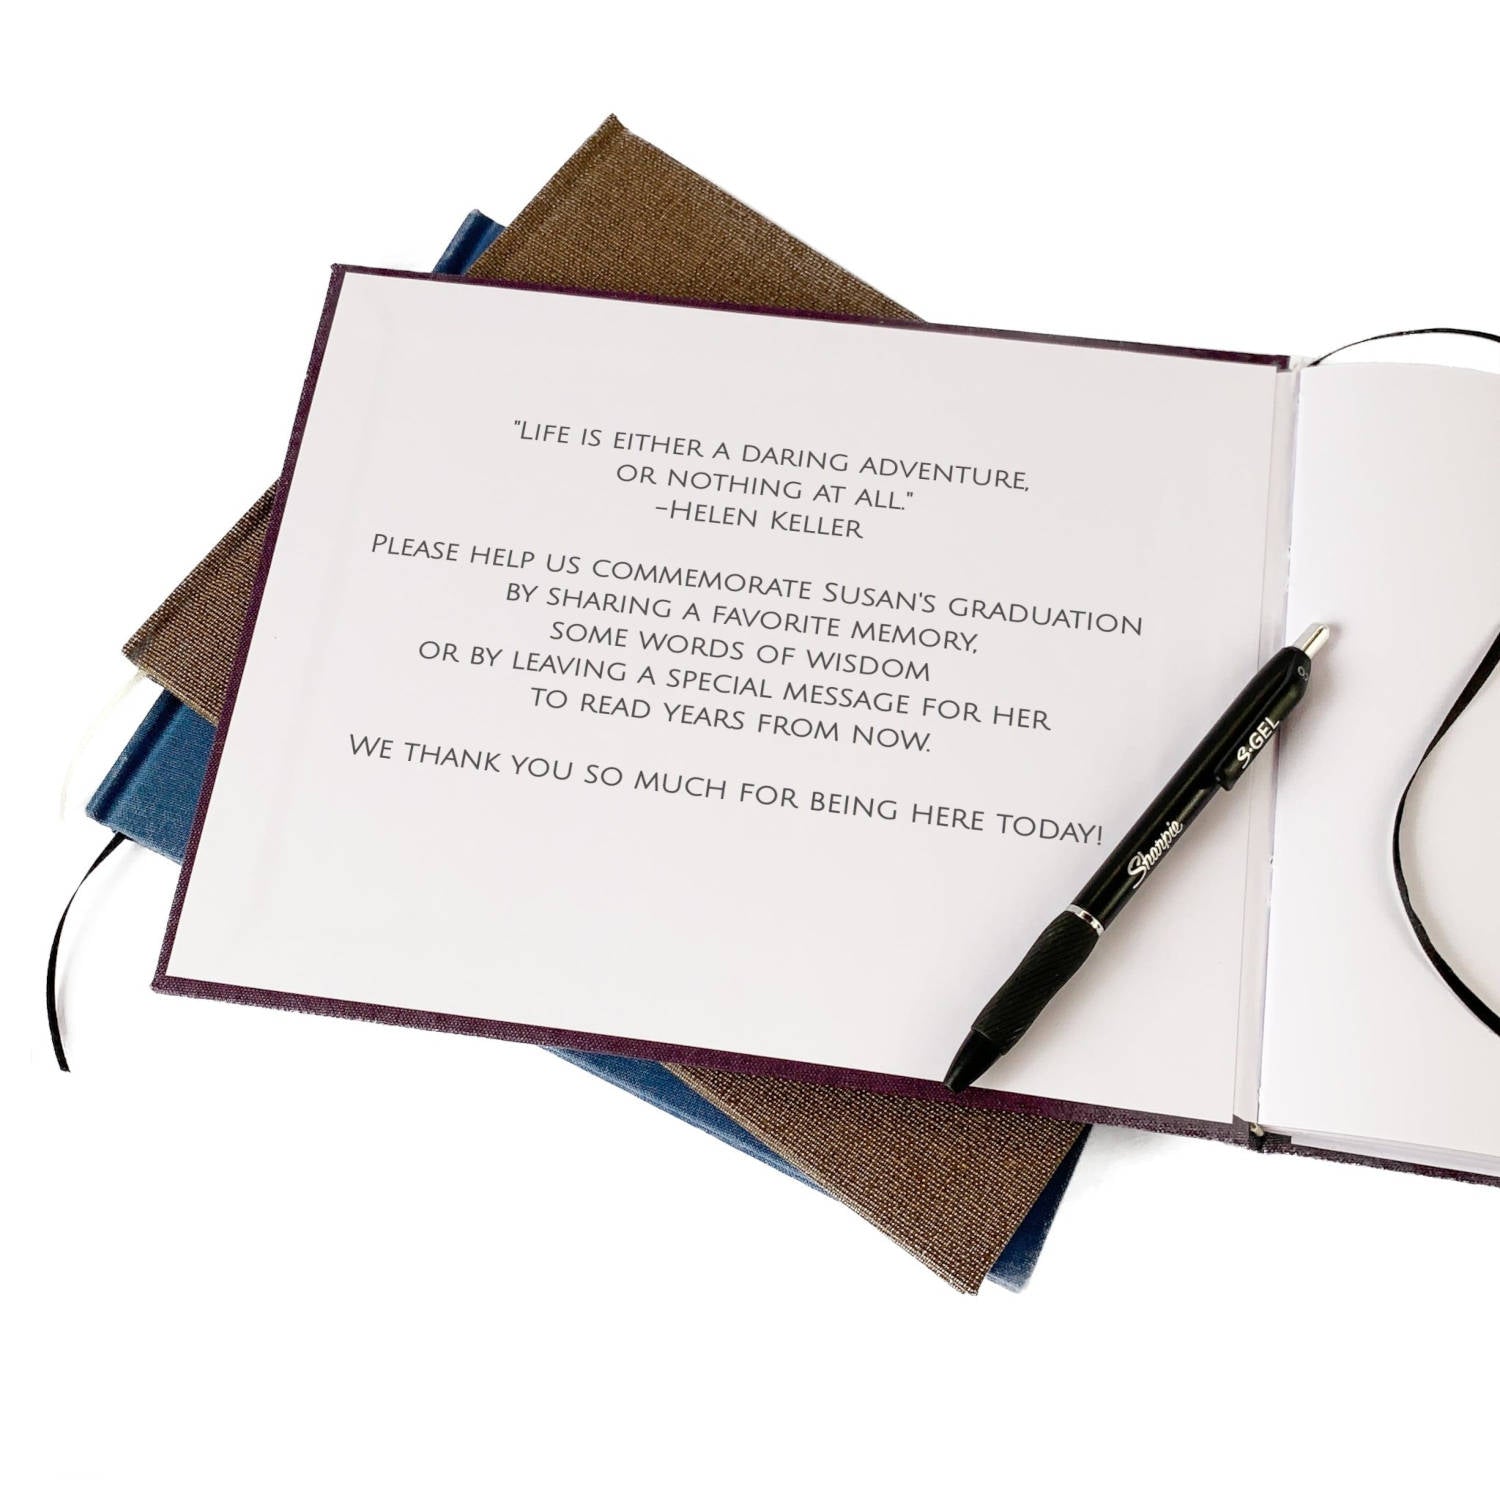 "Life is either a daring adventure,
or nothing at all."
-Helen Keller
Please help us commemorate Susan's graduation
by sharing a favorite memory,
some words of wisdom
or by leaving a special message for her
to read years from now.
We thank you so much for being here today!
S·GEL
Sharpie